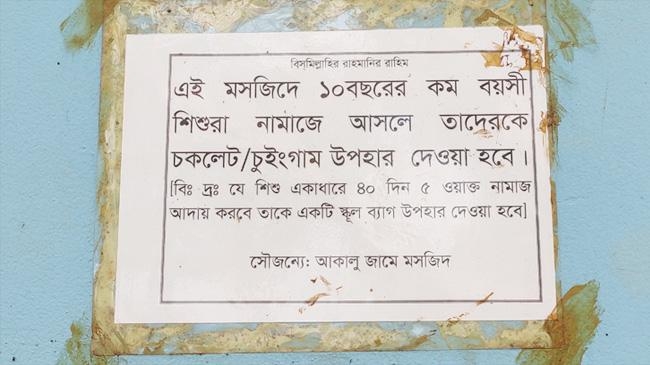 বিস্‌মিল্লাহির রাহমানির রাহিম
এই মসজিদে ১০বছরের কম বয়সী
শিশুরা নামাজে আসলে তাদেরকে
চকলেট/চুইংগাম উপহার দেওয়া হবে ।
[বিঃ দ্রঃ যে শিশু একাধারে ৪০ দিন ৫ ওয়াক্ত নামাজ
আদায় করবে তাকে একটি স্কুল ব্যাগ উপহার দেওয়া হবে]
সৌজন্যে: আকালু জামে মসজিদ